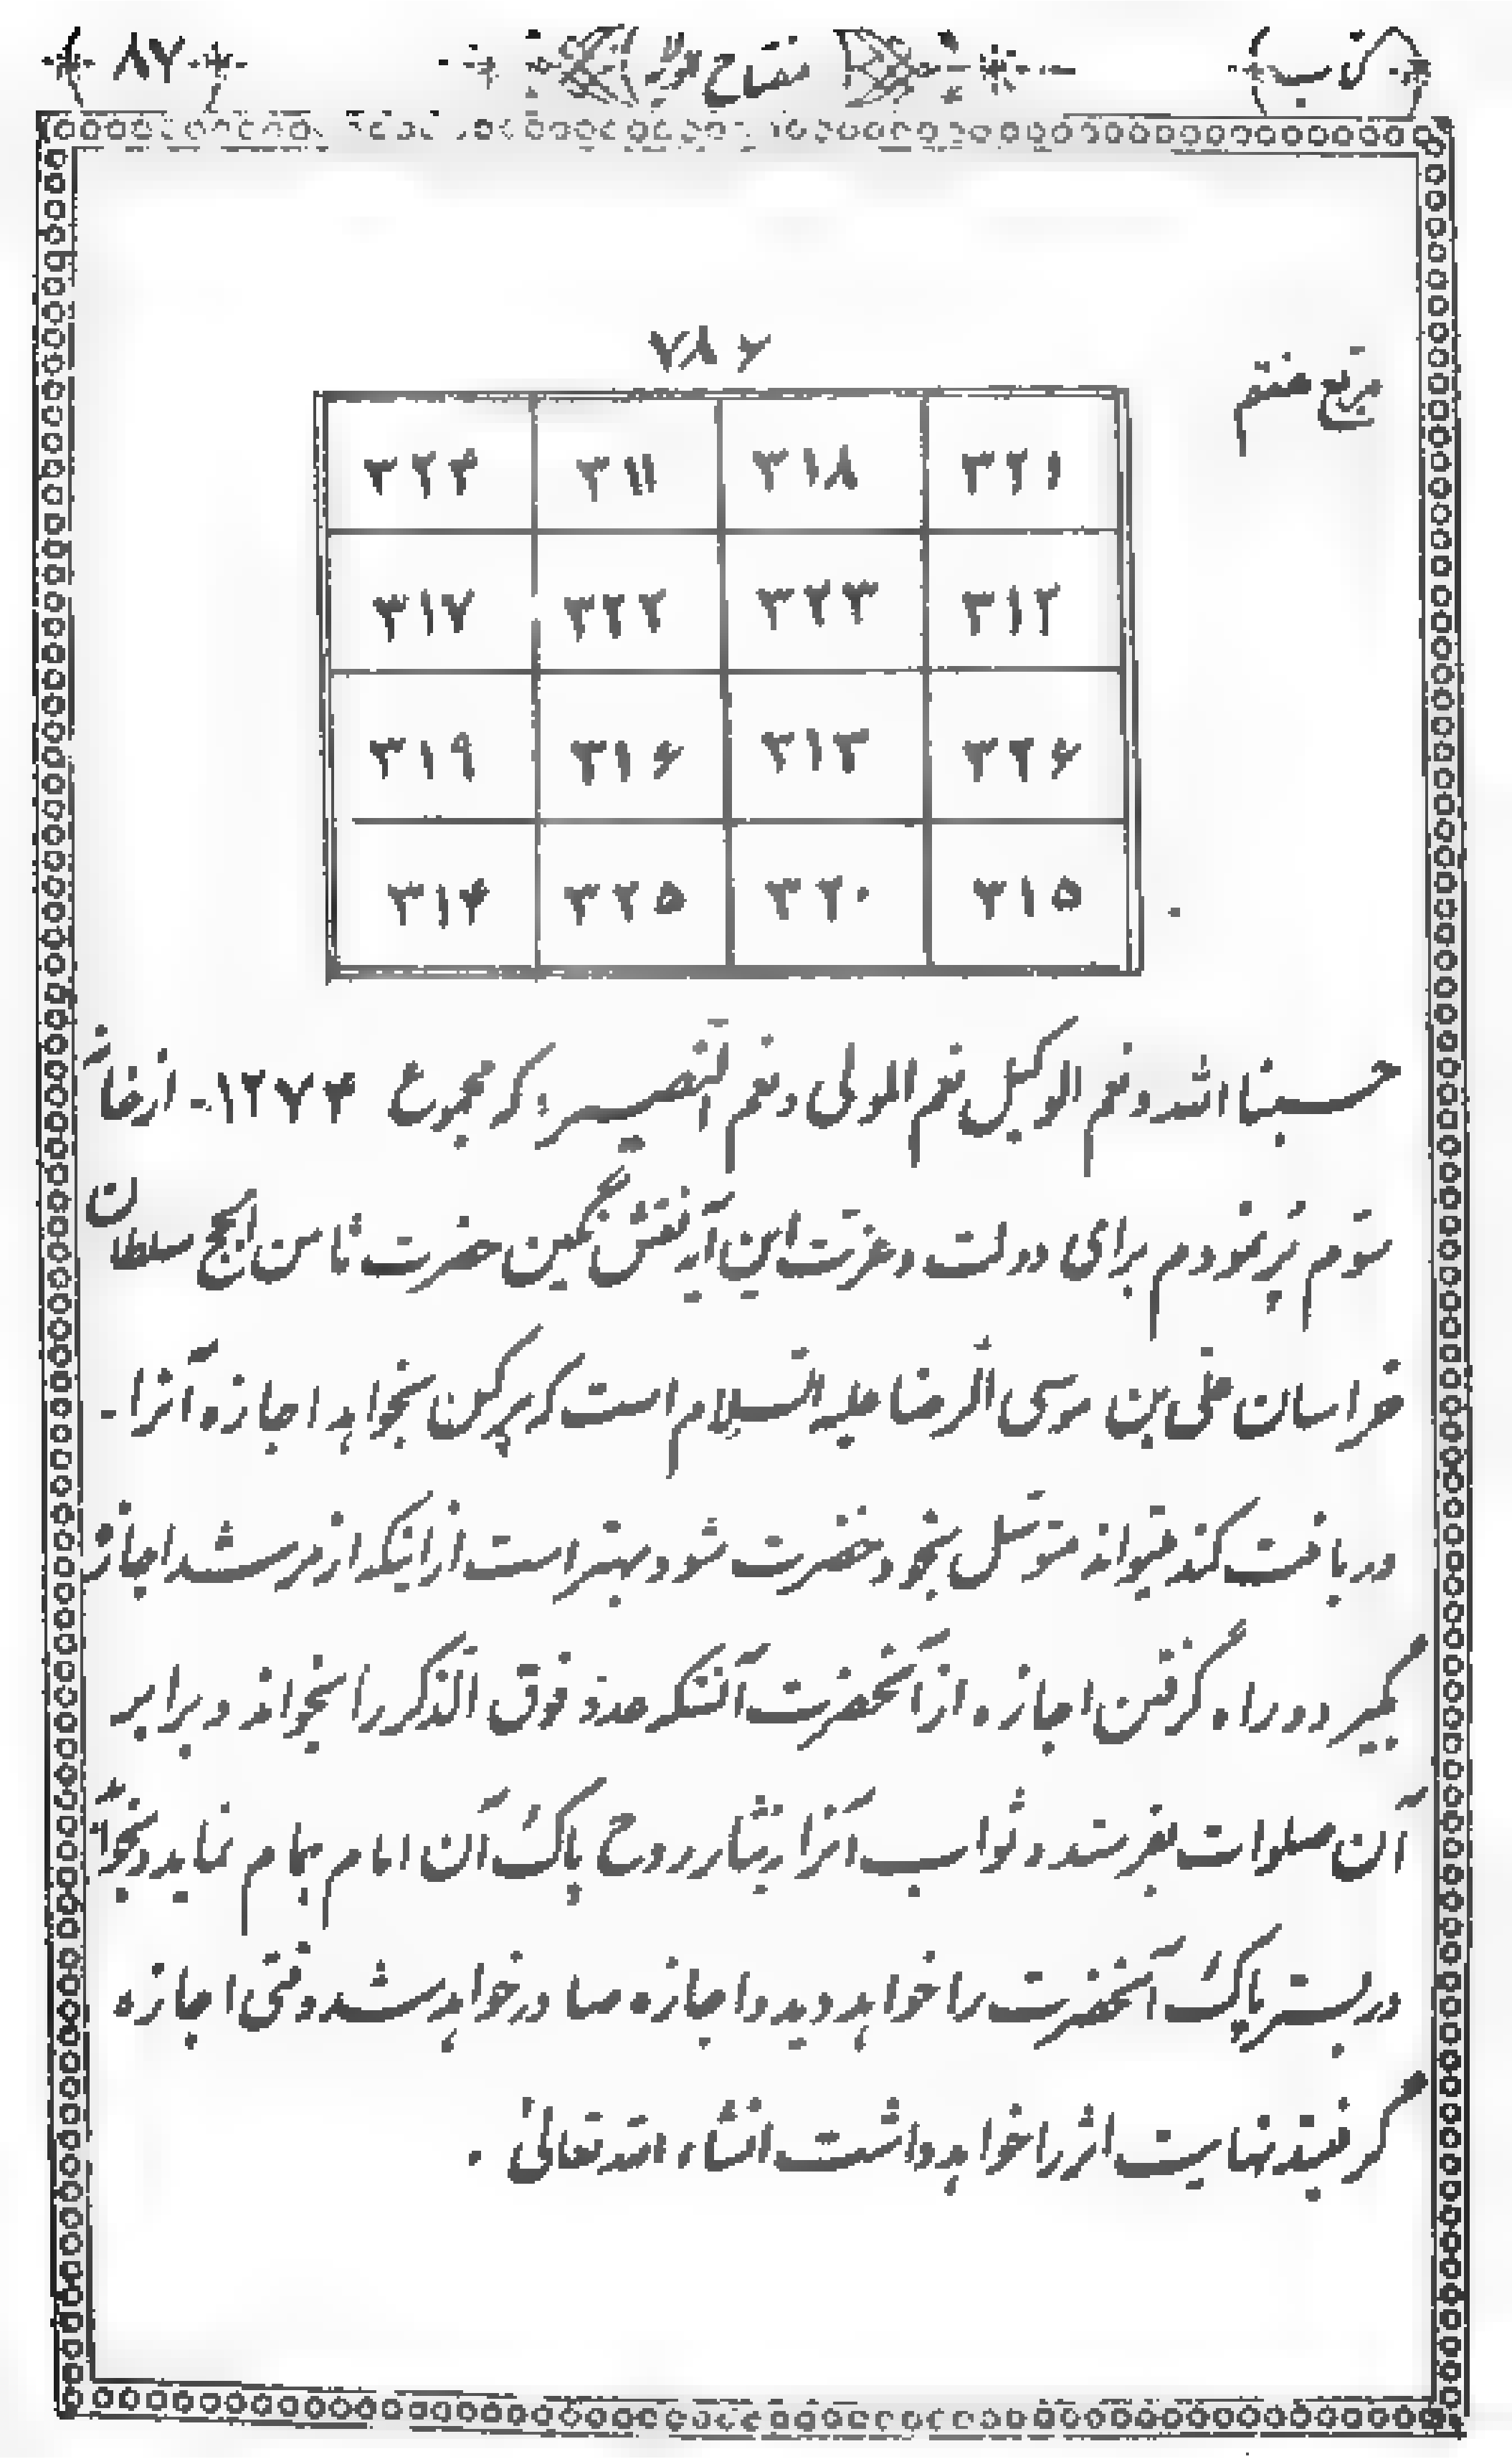 کتاب مفتاح ۸۷
۷۸۶
مربع هفتم
۳۲۱ ۳۱۸ ۳۱۱ ۳۲۴
۳۱۲ ۳۲۳ ۳۲۲ ۳۱۷
۳۲۶ ۳۱۳ ۳۱۶ ۳۱۹
۳۱۵ ۳۲۰ ۳۲۵ ۳۱۴
حسبنا الله و نعم الوکیل نعم المولی و نعم النصیر و که مجموع ۱۲۷۴- از خانهٔ
سوّم پُر نمودم برای دولت و عزّت این آیه نقش نگین حضرت ثامن الحجج سلطان
خراسان علی بن موسی الرضا علیه السّلام است که هر کس بخواهد اجازه آنرا -
دریافت کند میتواند متوسّل بخود حضرت شود و بهتر است از اینکه از مرشد اجازه
گیرد و راه گرفتن اجازه از آنحضرت آنستکه عدد فوق الذّکر را بخواند و برابر
آن صلوات بفرستد و ثواب آنرا نثار روح پاک آن امام همام نماید و بخوابد
در بستر پاک آنحضرت را خواهد دید و اجازه صادر خواهد شد وقتی اجازه
گرفتید نهایت اثر را خواهد داشت انشاء الله تعالی .